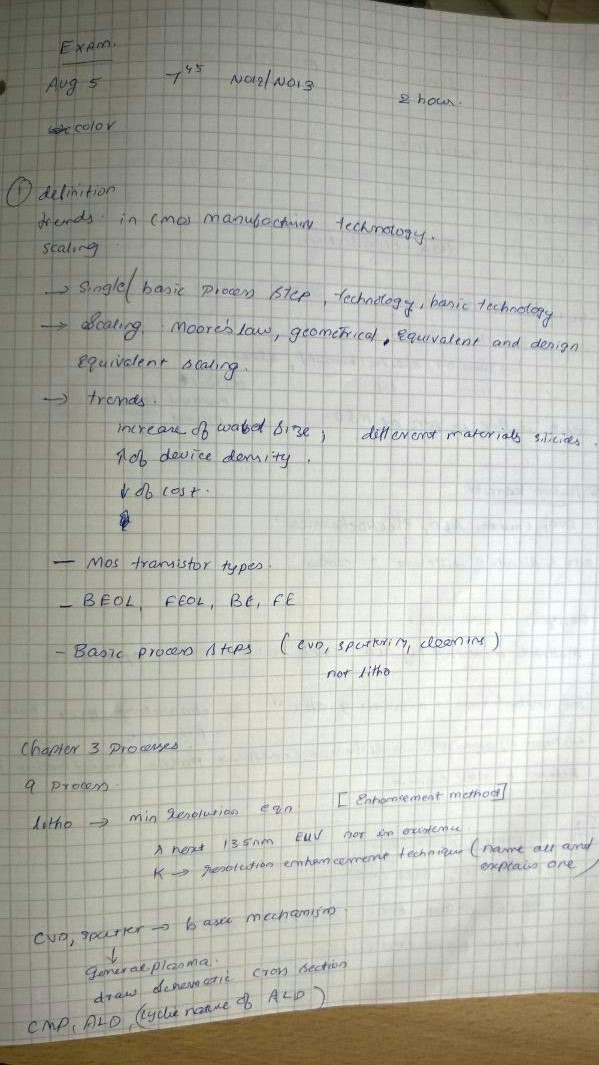 Exam.
Aug 5 7 45 N012/N013 2 hour.
color
① definition
trends: in CMOS manufacturing technology.
scaling
→ Single/basic process step, technology, basic technology
→ Scaling: Moore's law, geometrical, equivalent and design
equivalent scaling.
→ trends.
increase of size; different materials silicides.
↑ of device density.
↓ of cost.
— MOS transistor types.
– BEOL, FEOL, BE, FE
– Basic process steps (CVD, sputtering, cleaning)
not litho
Chapter 3 Processes
9 Process
litho → min resolution eqn [Enhancement method]
λ next 135nm EUV not in existence
K → resolution enhancement technique (name all and
explain one)
CVD, sputter → basic mechanism.
↓
general plasma.
draw schematic cross section
CMP, ALD, (cyclic nature of ALD)